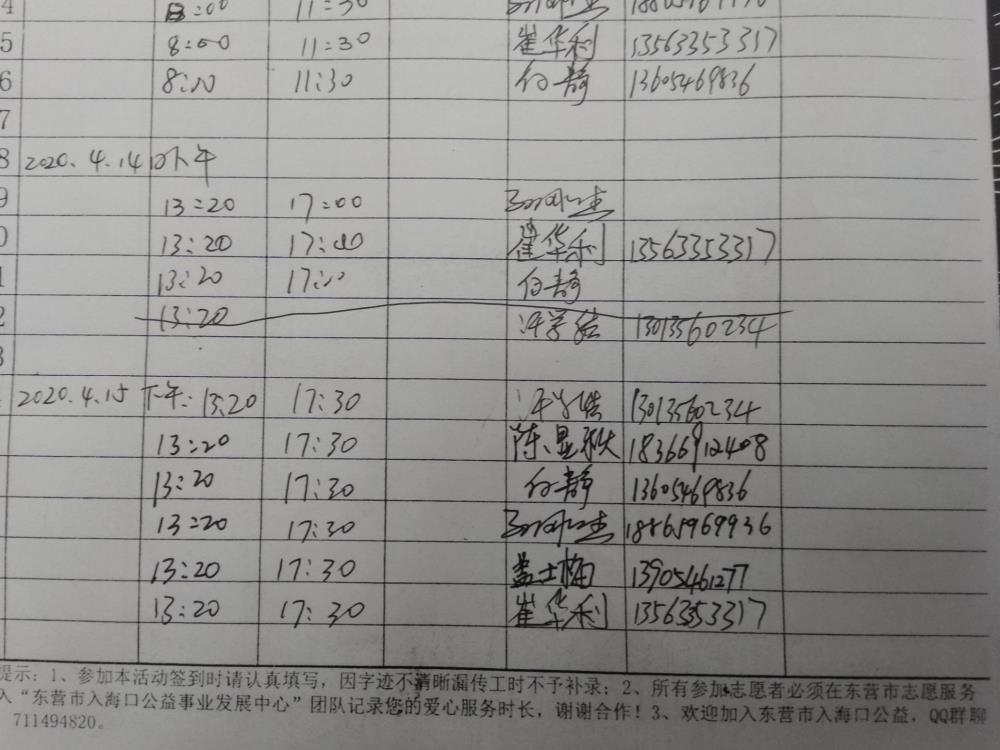 4 8:00 11:30
5 8:00 11:30 崔华利 13563353317
6 8:00 11:30 白静 13605469836
7
8 2020.4.14日下午
9 13:20 17:00
0 13:20 17:00 崔华利 13563353317
1 13:20 17:00 白静
2 13:20 13013560234
3
2020.4.15 下午:13:20 17:30 13013560234
13:20 17:30 陈显秋 18366912408
13:20 17:30 白静 13605469836
13:20 17:30 18865969936
13:20 17:30 盖士梅 13905461277
13:20 17:30 崔华利 13563353317
提示:1、参加本活动签到时请认真填写,因字迹不清晰漏传工时不予补录;2、所有参加志愿者必须在东营市志愿服务
入“东营市入海口公益事业发展中心”团队记录您的爱心服务时长,谢谢合作!3、欢迎加入东营市入海口公益,QQ群聊
711494820。